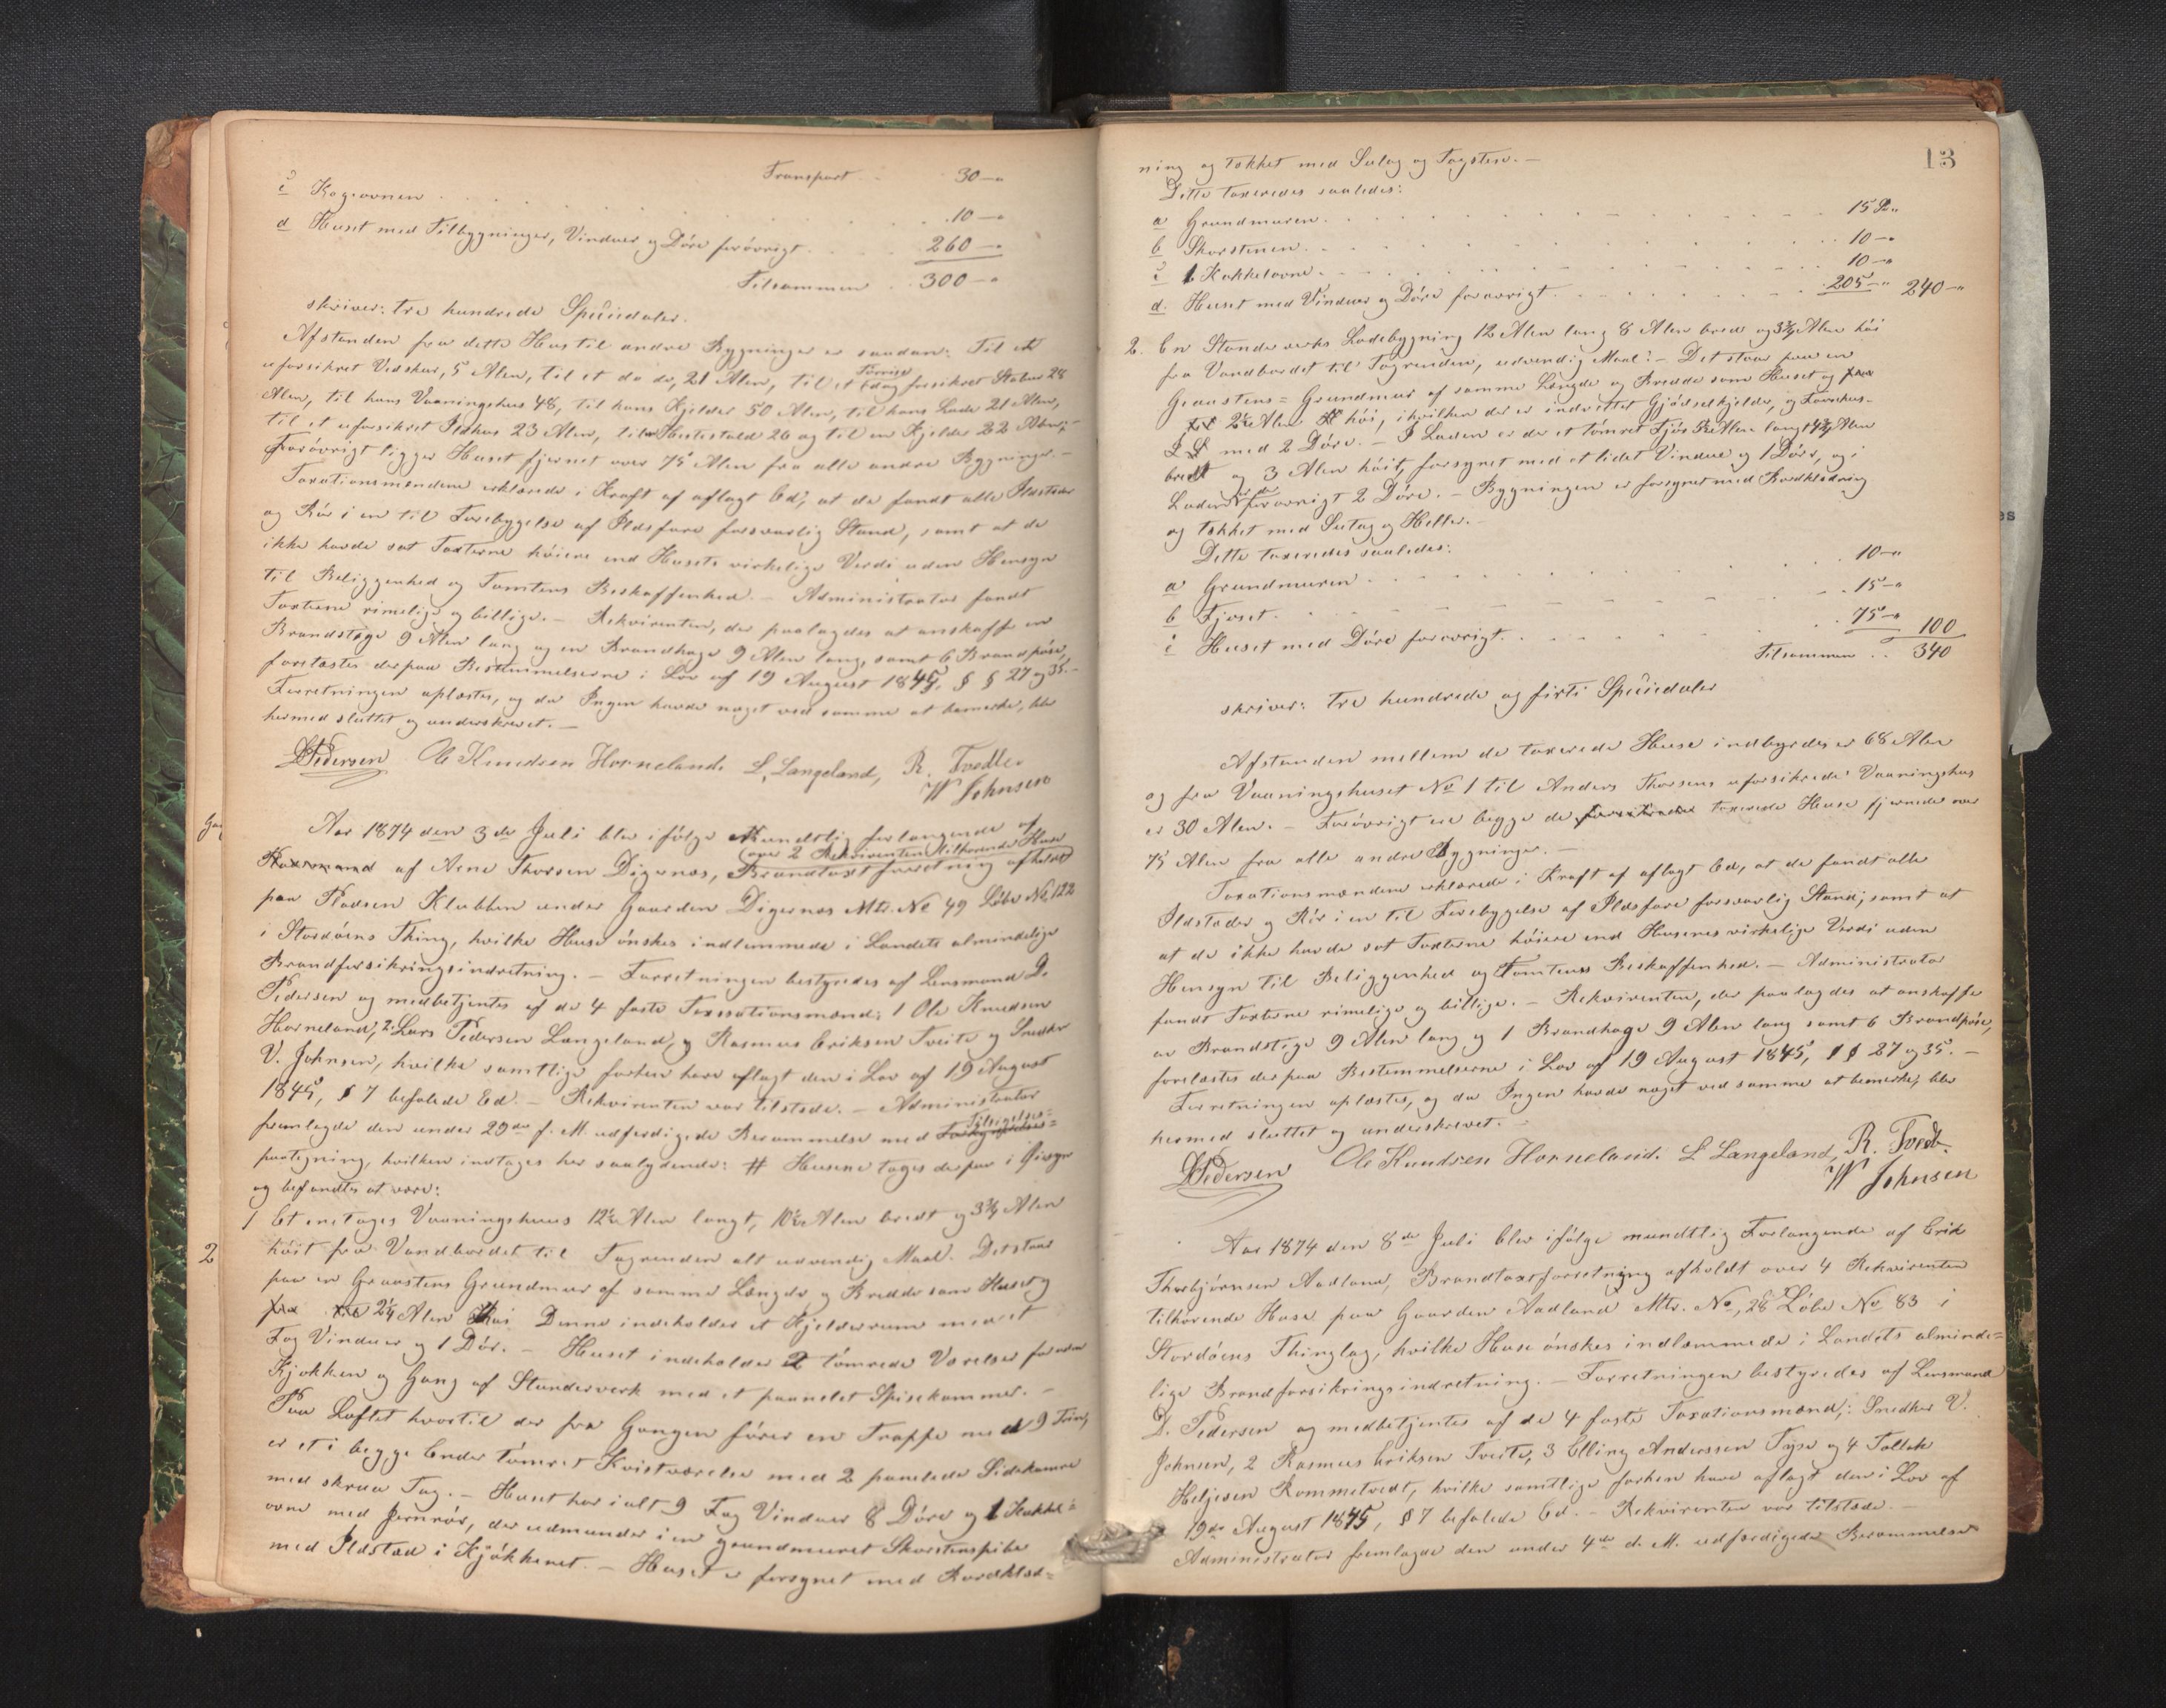 Transport . . 30 –"
c Kogeovnen . . . . 10 –"
d Huset med Tilbygninger, Vinduer og Döre forövrigt . . . 260 –"
Tilsammen . . 300 –"
skriver: tre hundrede Speciedaler.
Afstanden fra dette Hus til andre Bygninger er saadan: Til et
uforsikret Vedskur, 5 Alen, til et do do, 21 Alen, til et forsikret Stabur 28
Alen, til hans Vaaningshus 48, til hans Kjelder 50 Alen, til hans Lade 21 Alen,
til et uforsikret Ildhus 23 Alen, til Hestestald 26 og til en Kjelder 22 Alen; –
Forövrigt ligger Huset fjernet over 75 Alen fra alle andre Bygninger. –
Taxationsmændene erklærede i Kraft af aflagt Ed, at de fandt alle Ildsteder
og Rör i en til Forebyggelse af Ildsfare forsvarlig Stand, samt at de
ikke havde sat Taxterne höiere end Husets virkelige Verdi uden Hensyn
til Beliggenhed og Tomtens Beskaffenhed. – Administrator fandt
Taxterne rimelige og billige. – Rekvirenten, der paalagdes at anskaffe en
Brandstige 9 Alen lang og en Brandhage 9 Alen lang, samt 6 Brandpöse,
forelæstes derpaa Bestemmelserne i Lov af 19 August 1845, § § 27 og 35. –
Forretningen oplæstes, og da Ingen havde noget ved samme at bemerke, blev
hermed sluttet og underskrevet. –
D Pedersen Ole Knudsen Horneland. L. Langeland, R. Tvedte
W Johnsen
Aar 1874 den 3de Juli blev ifölge Mundtlig forlangende af
over 2 Rekvirenten tilhörende Huse
af Arne Thorsen Digernes, Brandtaxtforretning afholdt
paa Pladsen Klubben under Gaarden Digernes Mtr. No 49 Löbe No 122
i Stordöens Thing, hvilke Huse önskes indlemmede i Landets almindelige
Brandforsikringsindretning. – Forretningen bestyredes af Lensmand D.
Pedersen og medbetjentes af de 4 faste Taxationsmænd; 1 Ole Knudsen
Horneland, 2. Lars Pedersen Langeland, og Rasmus Eriksen Tveite og Snedker
V. Johnsen, hvilke samtlige forhen have aflagt den i Lov af 19 August
1845, § 7 befalede Ed. – Rekvirenten var tilstede. – Administrator
Tilsigelses=
fremlagde den under 29de f. M. udferdigede Berammelse med
paategning, hvilken indtages her saalydende: # Husene toges derpaa i Öiesyn
og befandtes at være:
1 Et enetages Vaaningshuus 12½ Alen langt, 10½ Alen bredt og 3¾ Alen
2
höit fra Vandbordet til Tagrenden alt udvendig Maal. Det staar
paa en Graastens Grundmur af samme Længde og Bredde som Huset og
2¼ Alen Höi Denne indeholder et Kjelderrum med et
Fag Vinduer og 1 Dör. – Huset indeholder 2 tömrede Værelser foruden
Kjökken og Gang af Standerverk med et paanelet Spisekammer. –
Paa Loftet hvortil der fra Gangen förer en Trappe med 9 Trin,
er et i begge Ender tömret Kvistværelse med 2 panelede Sidekamre
med skraa Tag. – Huset har i alt 9 Fag Vinduer 8 Döre og 1 Kakkel=
ovne med Jernrör, der udmunder i en grundmuret Skorstenspibe
med Ildsted i Kjökkenet. – Huset er forsynet med Bordklæd=
13
ning og tækket med Sutag og Tagsten. –
Dette taxeredes saaledes:
a Grundmuren . . . . 15 S"
b Skorstenen . . . . 10 –"
c 1 Kakkelovne . . . . 10 –"
d. Huset med Vinduer og Döre forövrigt . . . . 205 –" 240 –"
2. En Standerverks Ladebygning 12 Alen lang 8 Alen bred og 3¾ Alen höi
fra Vandbordet til Tagrenden, udvendig Maal. – Det staar paa en
Graastens= Grundmur af samme Længde og Bredde som Huset og
2½ Alen höi, i hvilken der er indrettet Gjödselkjelder, og
med 2 Döre. – I Laden er der et tömret Fjös Alen langt 4¾ Alen
bredt og 3 Alen höit, forsynet med et lidet Vindue og 1 Dör, og i
Laden er der forövrigt 2 Döre. – Bygningen er forsynet med Bordklædning
og tækket med Sutag og Heller. –
Dette taxeredes saaledes:
a Grundmuren . . . . 10 –"
b Fjöset . . . . 15 –"
c Huset med Döre forövrigt . . . . 75 –" 100
Tilsammen . . 340
skriver: tre hundrede og firti Speciedaler
Afstanden mellem de taxerede Huse indbyrdes er 68 Alen
og fra Vaaningshuset No 1 til Anders Thorsens uforsikrede Vaaningshus
er 30 Alen. – Forövrigt ere begge de taxerede Huse fjernede over
75 Alen fra alle andre Bygninger. –
Taxationsmændene erklærede i Kraft af aflagt Ed, at de fandt alle
Ildsteder og Rör i en til Forebyggelse af Ildsfare forsvarlig Stand; samt at
at de ikke havde sat Taxterne höiere end Husenes virkelige Verdi uden
Hensyn til Beliggenhed og Tomtens Beskaffenhed. – Administrator
fandt Taxterne rimelige og billige. – Rekvirenten, der paalagdes at anskaffe
en Brandstige 9 Alen lang og 1 Brandhage 9 Alen lang samt 6 Brandpöse,
forelæstes derpaa Bestemmelserne i Lov af 19 August 1845, § § 27 og 35. –
Forretningen oplæstes, og da Ingen havde noget ved samme at bemerke, blev
hermed sluttet og underskrevet. –
D Pedersen Ole Knudsen Horneland. L Langeland, R. Tvedte
W Johnsen
Aar 1874 den 8de Juli blev ifölge mundtlig Forlangende af Erik
Thorbjörnsen Aadland, Brandtaxtforretning afholdt over 4 Rekvirenten
tilhörende Huse paa Gaarden Aadland Mtr. No, 28 Löbe No 83 i
Stordöens Thinglag, hvilke Huse önskes indlemmede i Landets alminde=
lige Brandforsikringsindretning. – Forretningen bestyredes af Lensmand
D. Pedersen og medbetjentes af de 4 faste Taxationsmænd,: Snedker V.
Johnsen, 2 Rasmus Eriksen Tveite, 3 Elling Anderssen Tyse og 4 Tollek
Heljesen Rommetvedt, hvilke samtlige forhen have aflagt den i Lov af
19de August 1845, § 7 befalede Ed. – Rekvirenten var tilstede. –
Administrator fremlagde den under 4de d. M. udferdigede Berammelse